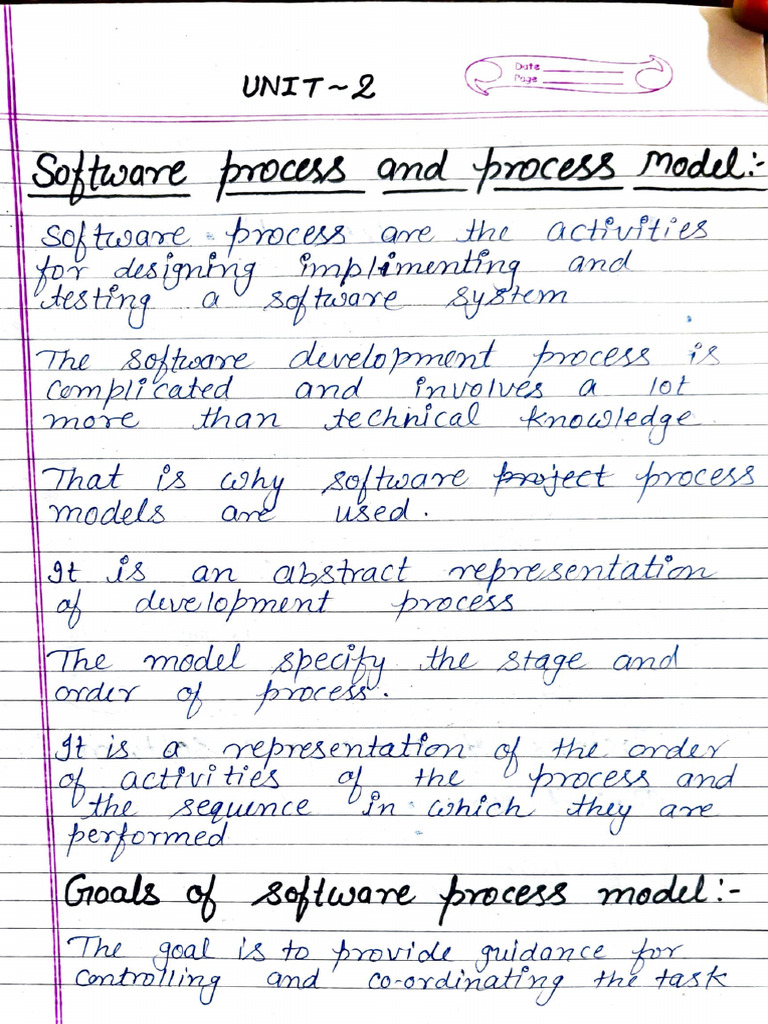 UNIT~2
Date
Page
Software process and process Model:-
Software process are the activities
for designing implimenting and
testing a software system
The software development process is
complicated and involves a lot
more than technical knowledge
That is why software project process
models are used.
It is an abstract representation
of development process
The model specify the stage and
order of process.
It is a representation of the order
of activities of the process and
the sequence in which they are
performed
Goals of software process model:-
The goal is to provide guidance for
controlling and co-ordinating the task